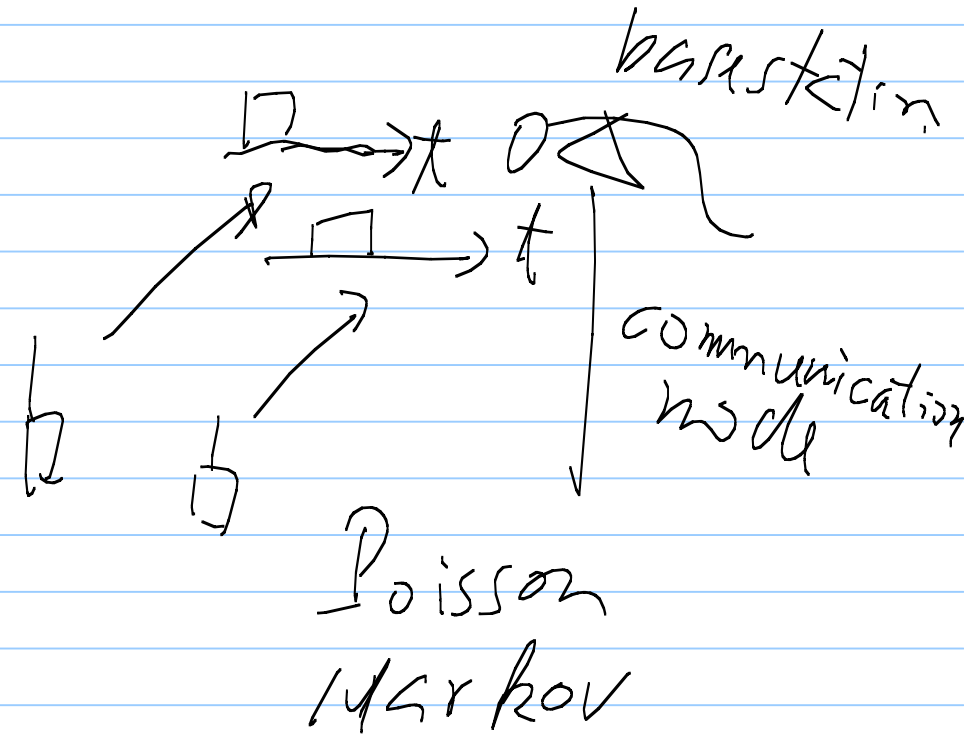 basestatin
t
t
communication
node
Poisson
Markov